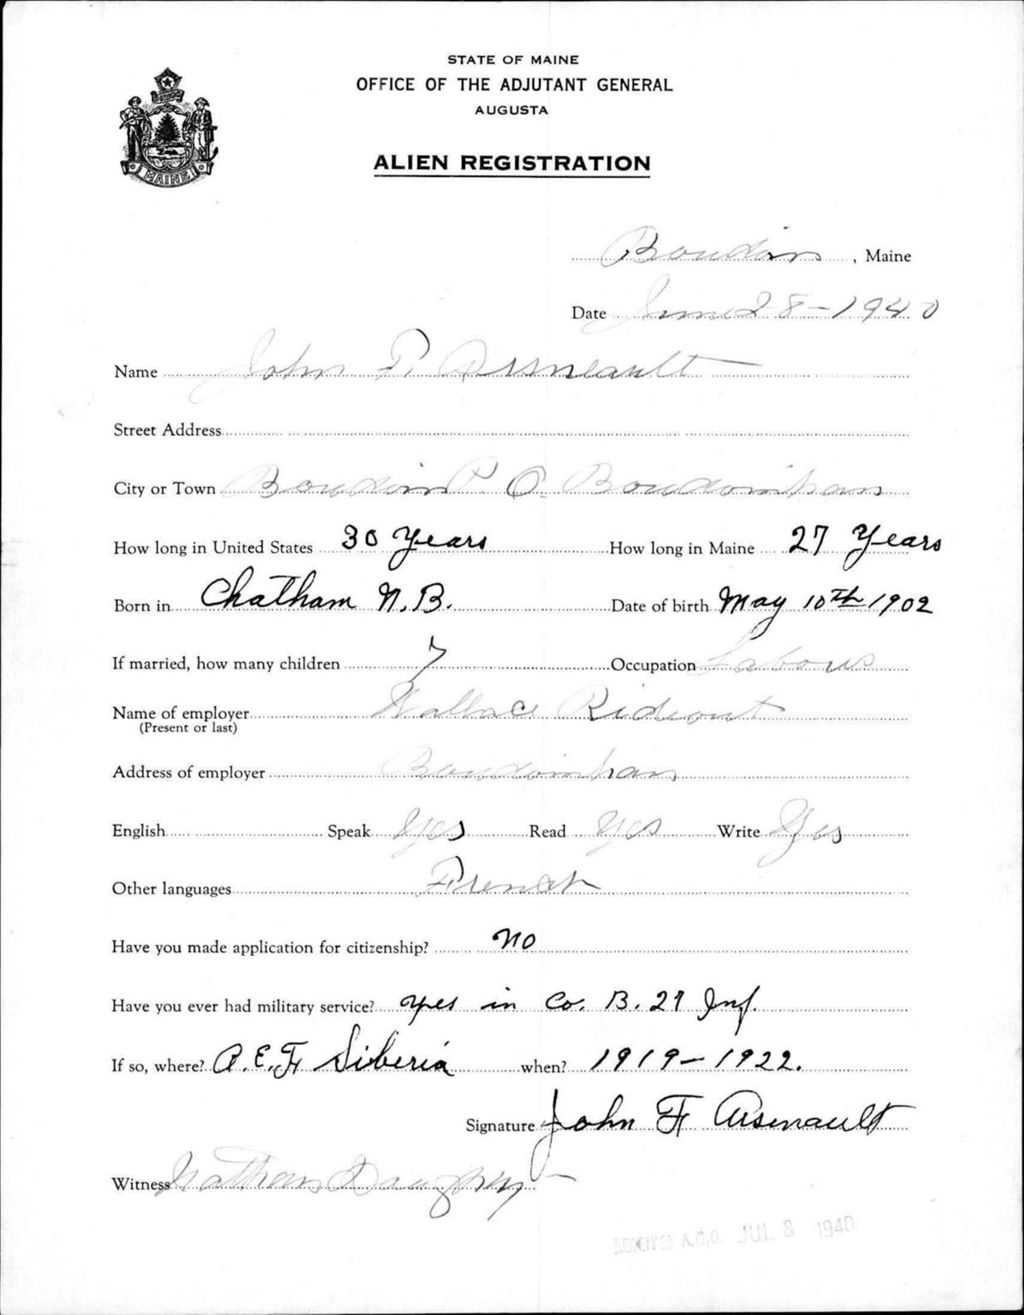 STATE OF MAINE
OFFICE OF THE ADJUTANT GENERAL
AUGUSTA
ALIEN REGISTRATION
MAINE
Bowdoin, Maine
Date June 28-1940
Name John F. Arsneault
Street Address
City or Town Bowdoin P. O. Bowdoinham
How long in United States 30 Years How long in Maine 27 Years
Born in Chatham N.B. Date of birth May 10th 1902
If married, how many children 7 Occupation
Name of employer Wallace Rideout
(Present or last)
Address of employer Bowdoinham
English Speak Yes Read Yes Write Yes
Other languages French
Have you made application for citizenship? No
Have you ever had military service? Yes in Co. B. 27 Inf.
If so, where? A.E.F Siberia when? 1919-1922.
Signature John F Arsenault
Witness Nathan
RECEIVED A.G.O. JUL 8 1940